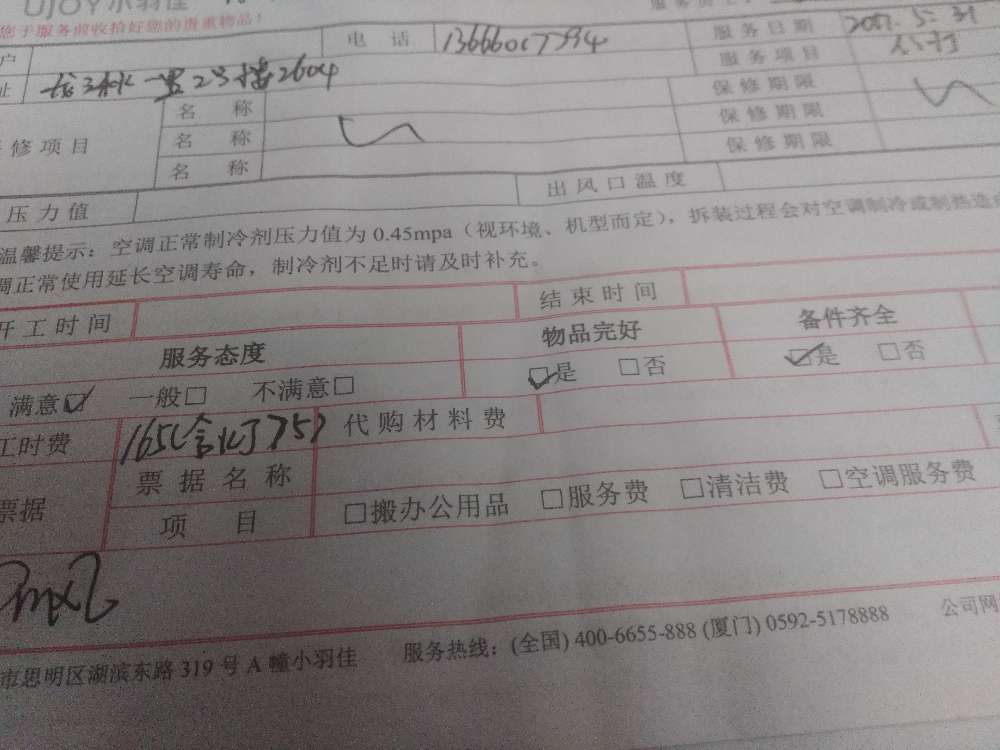 UJOY小羽佳
您于服务前收拾好您的贵重物品！
户 电 话 服务日期 2017.5.31
址 一里23楼2604 服务项目
名 称 保修期限
修项目 名 称 保修期限
名 称 保修期限
压力值 出风口温度
温馨提示：空调正常制冷剂压力值为 0.45mpa（视环境、机型而定），拆装过程会对空调制冷或制热造
调正常使用延长空调寿命，制冷剂不足时请及时补充。
开工时间 结束时间
服务态度 物品完好 备件齐全
满意☑ 一般□ 不满意□ ☑是 □否 ☑是 □否
工时费 165 代购材料费
票据 票据名称 □搬办公用品 □服务费 □清洁费 □空调服务费
项 目
市思明区湖滨东路 319 号 A 幢小羽佳 服务热线：(全国) 400-6655-888 (厦门) 0592-5178888 公司网